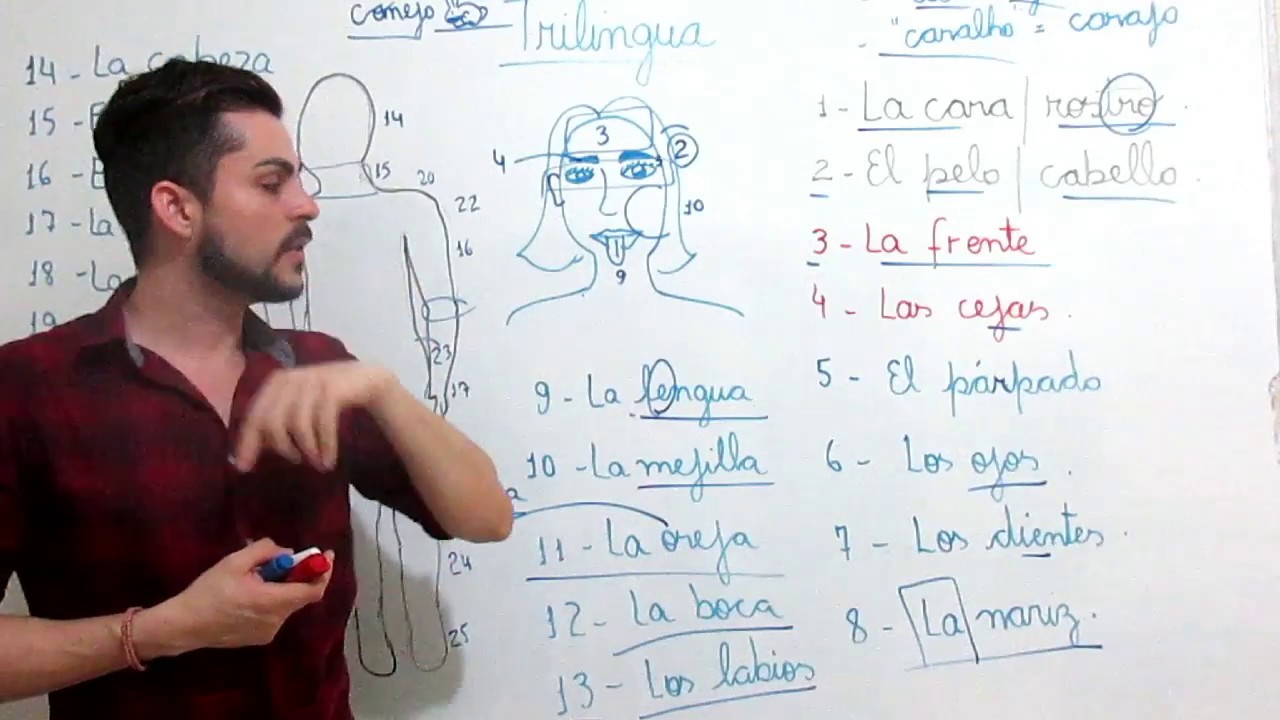 conejo
Trilingua
"caralho" = carajo
14 - La cabeza
15 -
16 -
17 - La
18 - La
19
14
15
20
22
16
23
17
24
25
3
4
2
10
9
1 - La cara / rostro.
2 - El pelo / cabello.
3 - La frente
4 - Las cejas.
5 - El párpado
6 - Los ojos.
7 - Los dientes.
8 - La nariz.
9 - La lengua
10 - La mejilla
11 - La oreja
12 - La boca
13 - Los labios